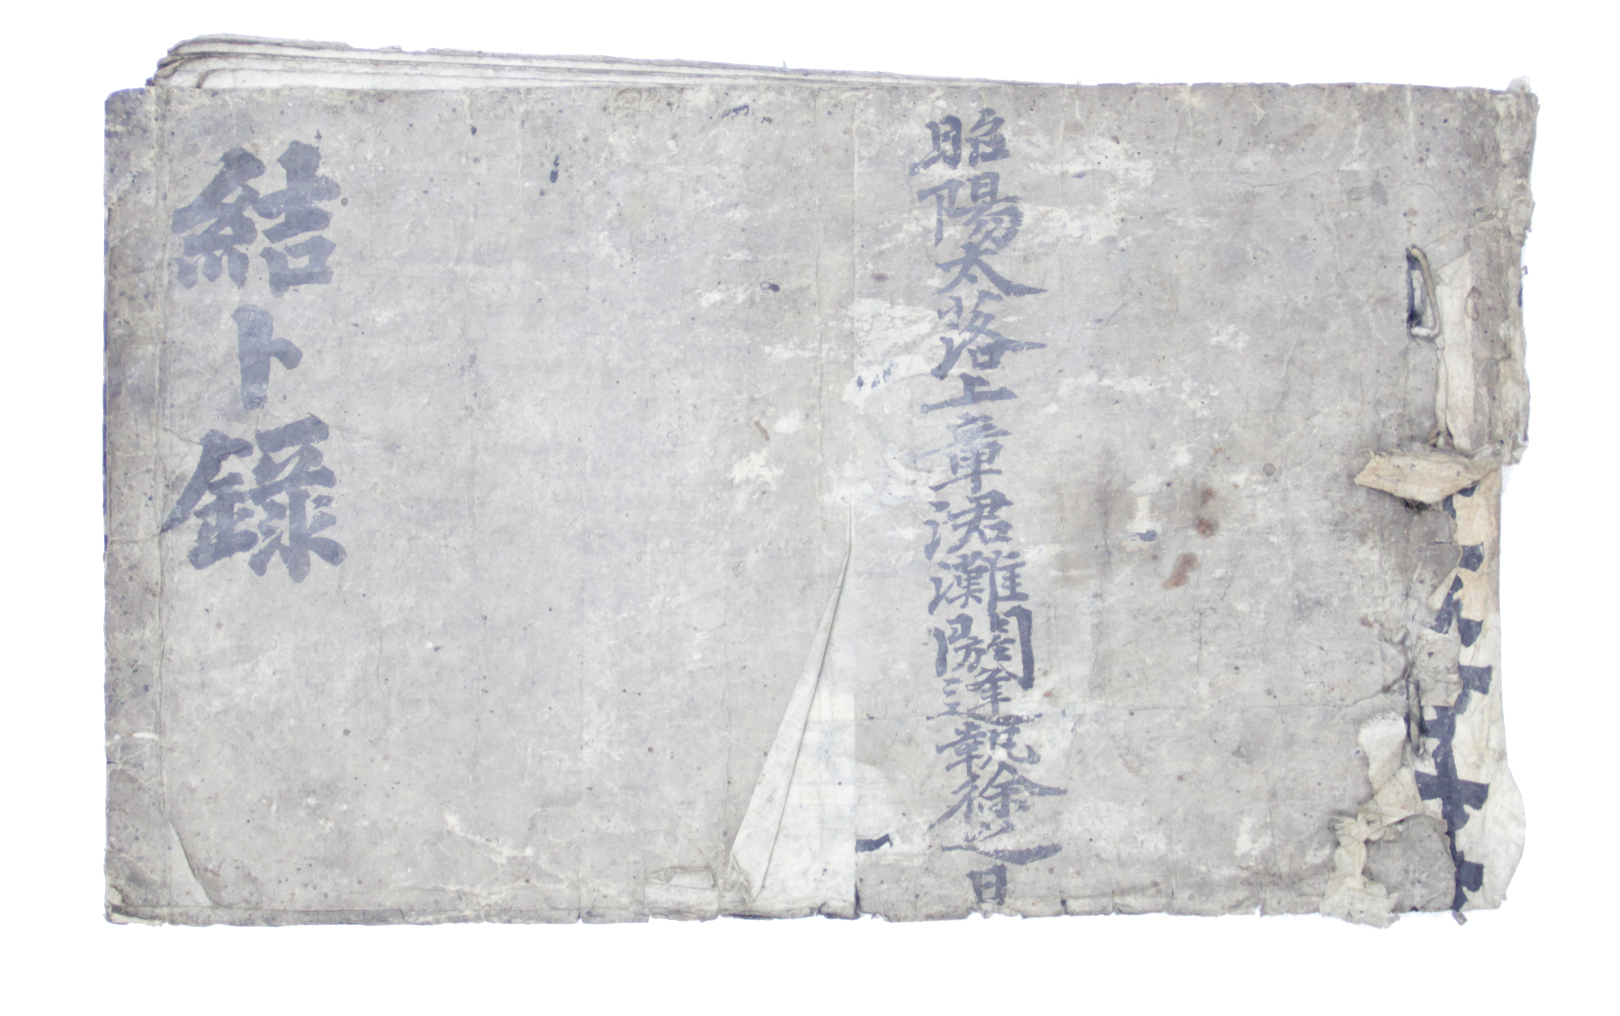 昭陽太落上章涒灘閼逢執徐之日
結卜錄